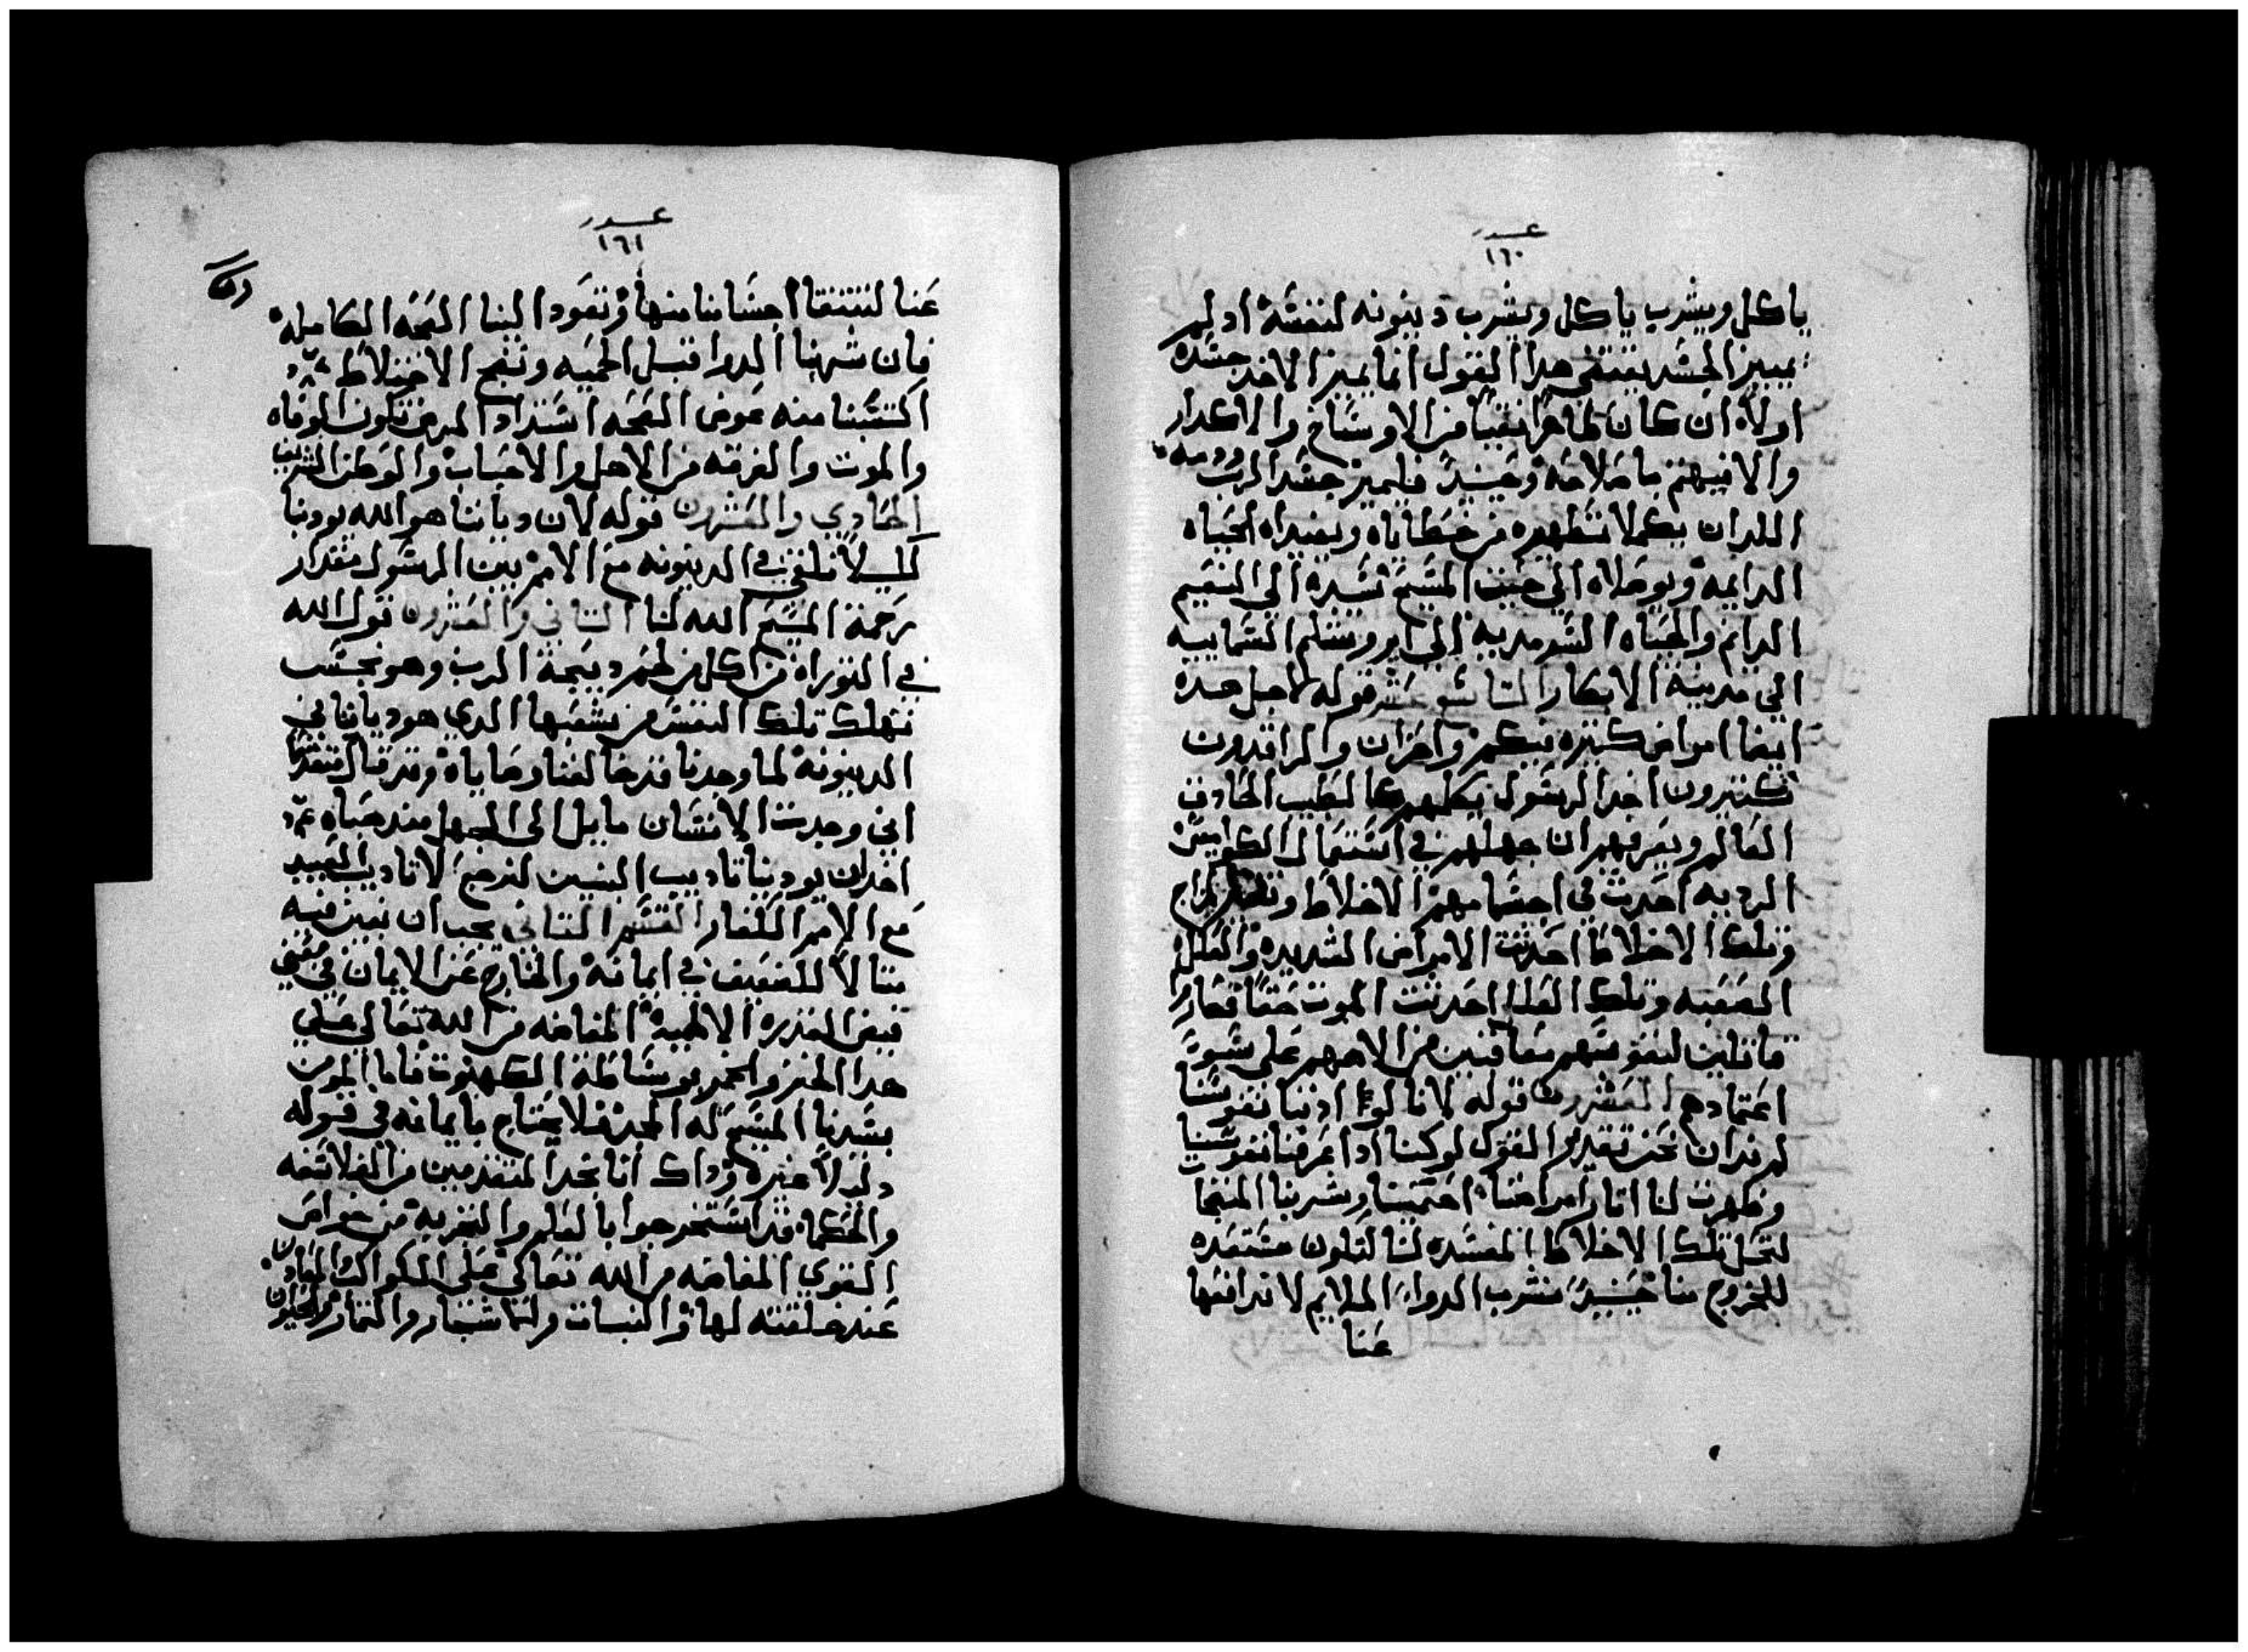 عدد
١٦٠
ياكل ويشرب ياكل ويشرب دينونه لنفسه اد لم
يميز الجسد يقتضي هدا القول انما يميز الاخد جسده
اولاً ان كان طاهراً نقياً من الاوساخ والاكدار
والا فيهتم باصلاحه وحينيدً فليميز جسد الرب ودمه
اللدان بكملا تطهيره من خطاياه ويفيداه الحياه
الدايمه ويوصلاه الي حيت المسيح تسيده الي النعيم
الدايم والحياه السرمديه الي اوروشلم السماييه
الي مدينة الابكار التاسع عشر قوله لاجل هده
ايضا امراض كتيره فيكم واحزان والراقدون
تكتيرون اخد الرسول يكلمهم كالطبيب الحادق
العالم ويعرفهم ان جهلهم في استعمال الكواميس
الرديه احدث في اجسامهم الاخلاط المزاج
وتلك الاخلاط احدثت الامراض الشديده والعلل
الصعبه وتلك العلل احدثت الموت حتماً فصاروا
قاتلين لنفوسهم معاقبين من الاههم على سوء
اعتمادهم العشرون قوله لانا لو ادنا نفوسنا
لم ندان نحن تقدير القول لو كنا ادا عرفنا نفوسنا
وظهرت لنا اتار امراضنا احتمينا وشربنا المنضجا
لتحل تلك الاخلاط المفسده لنا لتلون مستعده
للخروج منا حينيدً نشرب الدواء الملايم لاندافعها
عنا
عدد
١٦١
عنا لتتنقا اجسامنا منها وتعود الينا الصحه الكامله
فان شربنا الدوا قبل الحميه ونضج الاختلاط
اكتسبنا منه عوض الصحه اشتداد المرض فتكون الوفاه
والموت والفرقه من الاهل والاحباب والوطن الشريف
الحادي والعشرون قوله لان دياننا هو الله يودبنا
لكيلا نلقي في الدينونه مع الامم بين الرسول مقدار
رحمة المسيح الله لنا التاني والعشرون قول الله
في التوراه من اكل من لحم دبيحة الرب وهو نجس
تهلك تلك النفس من شعبها الدي هو دياننا في
الدينونه لما وجدنا قد خالفنا وصاياه وقد قال متقدماً
اني وجدت الانسان مايل الى الجهل مند صباه
اخد ان يودبنا تاديب البنين لنرجع لا تاديب العبيد
مع الامم الكفار القسم التاني يجب ان نبين فيه
متالاً للضعيف في ايمانه والخارج عن الايمان في معني
فيض القدره الالهيه المفاضه من الله تعالي علي
هدا الخبز والخمر بوساطة الكهنوت فاما المومن
بسيدنا المسيح له المجد فلا يحتاج بايمانه في قوله
دليلاً غيره وداك انا نجد المتقدمين من الفلاسفه
والحكما قد استخرجوا بالعلم والتجربه من خواص
القوي المفاضه من الله تعالي علي الكواكب والمعادن
عند خلقته لها والنبات والاشجار والتمار والحيوان